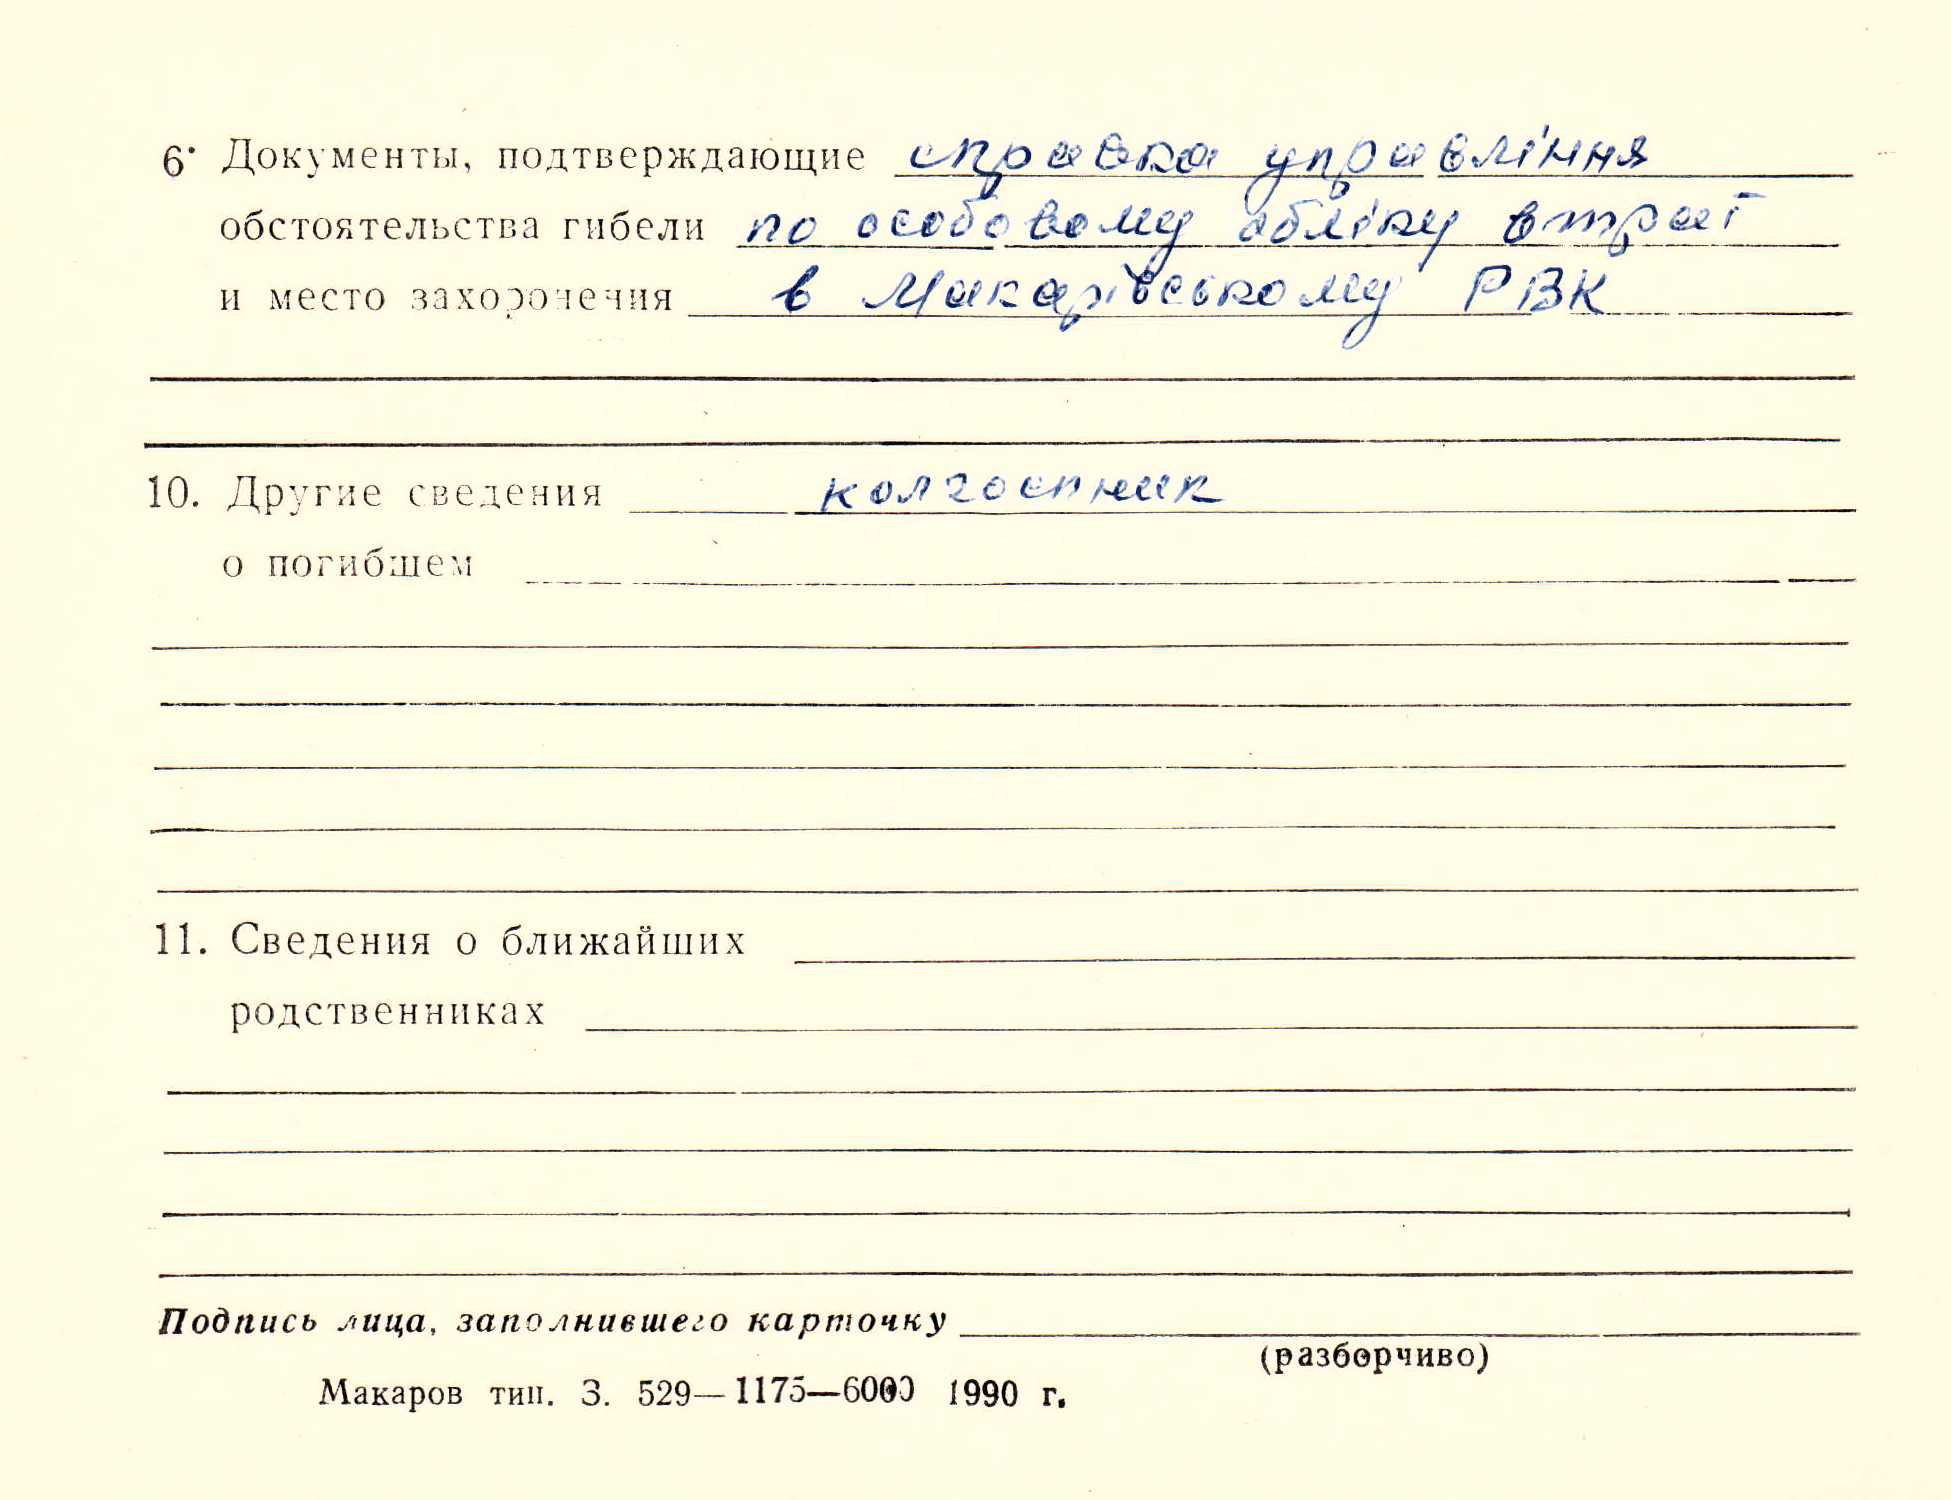 6. Документы, подтверждающие справка управління
обстоятельства гибели по особовому обліку втрат
и место захоронения в Макарівському РВК
10. Другие сведения колгоспник
о погибшем
11. Сведения о ближайших
родственниках
Подпись лица, заполнившего карточку
(разборчиво)
Макаров тип. З. 529—1175—6000 1990 г.